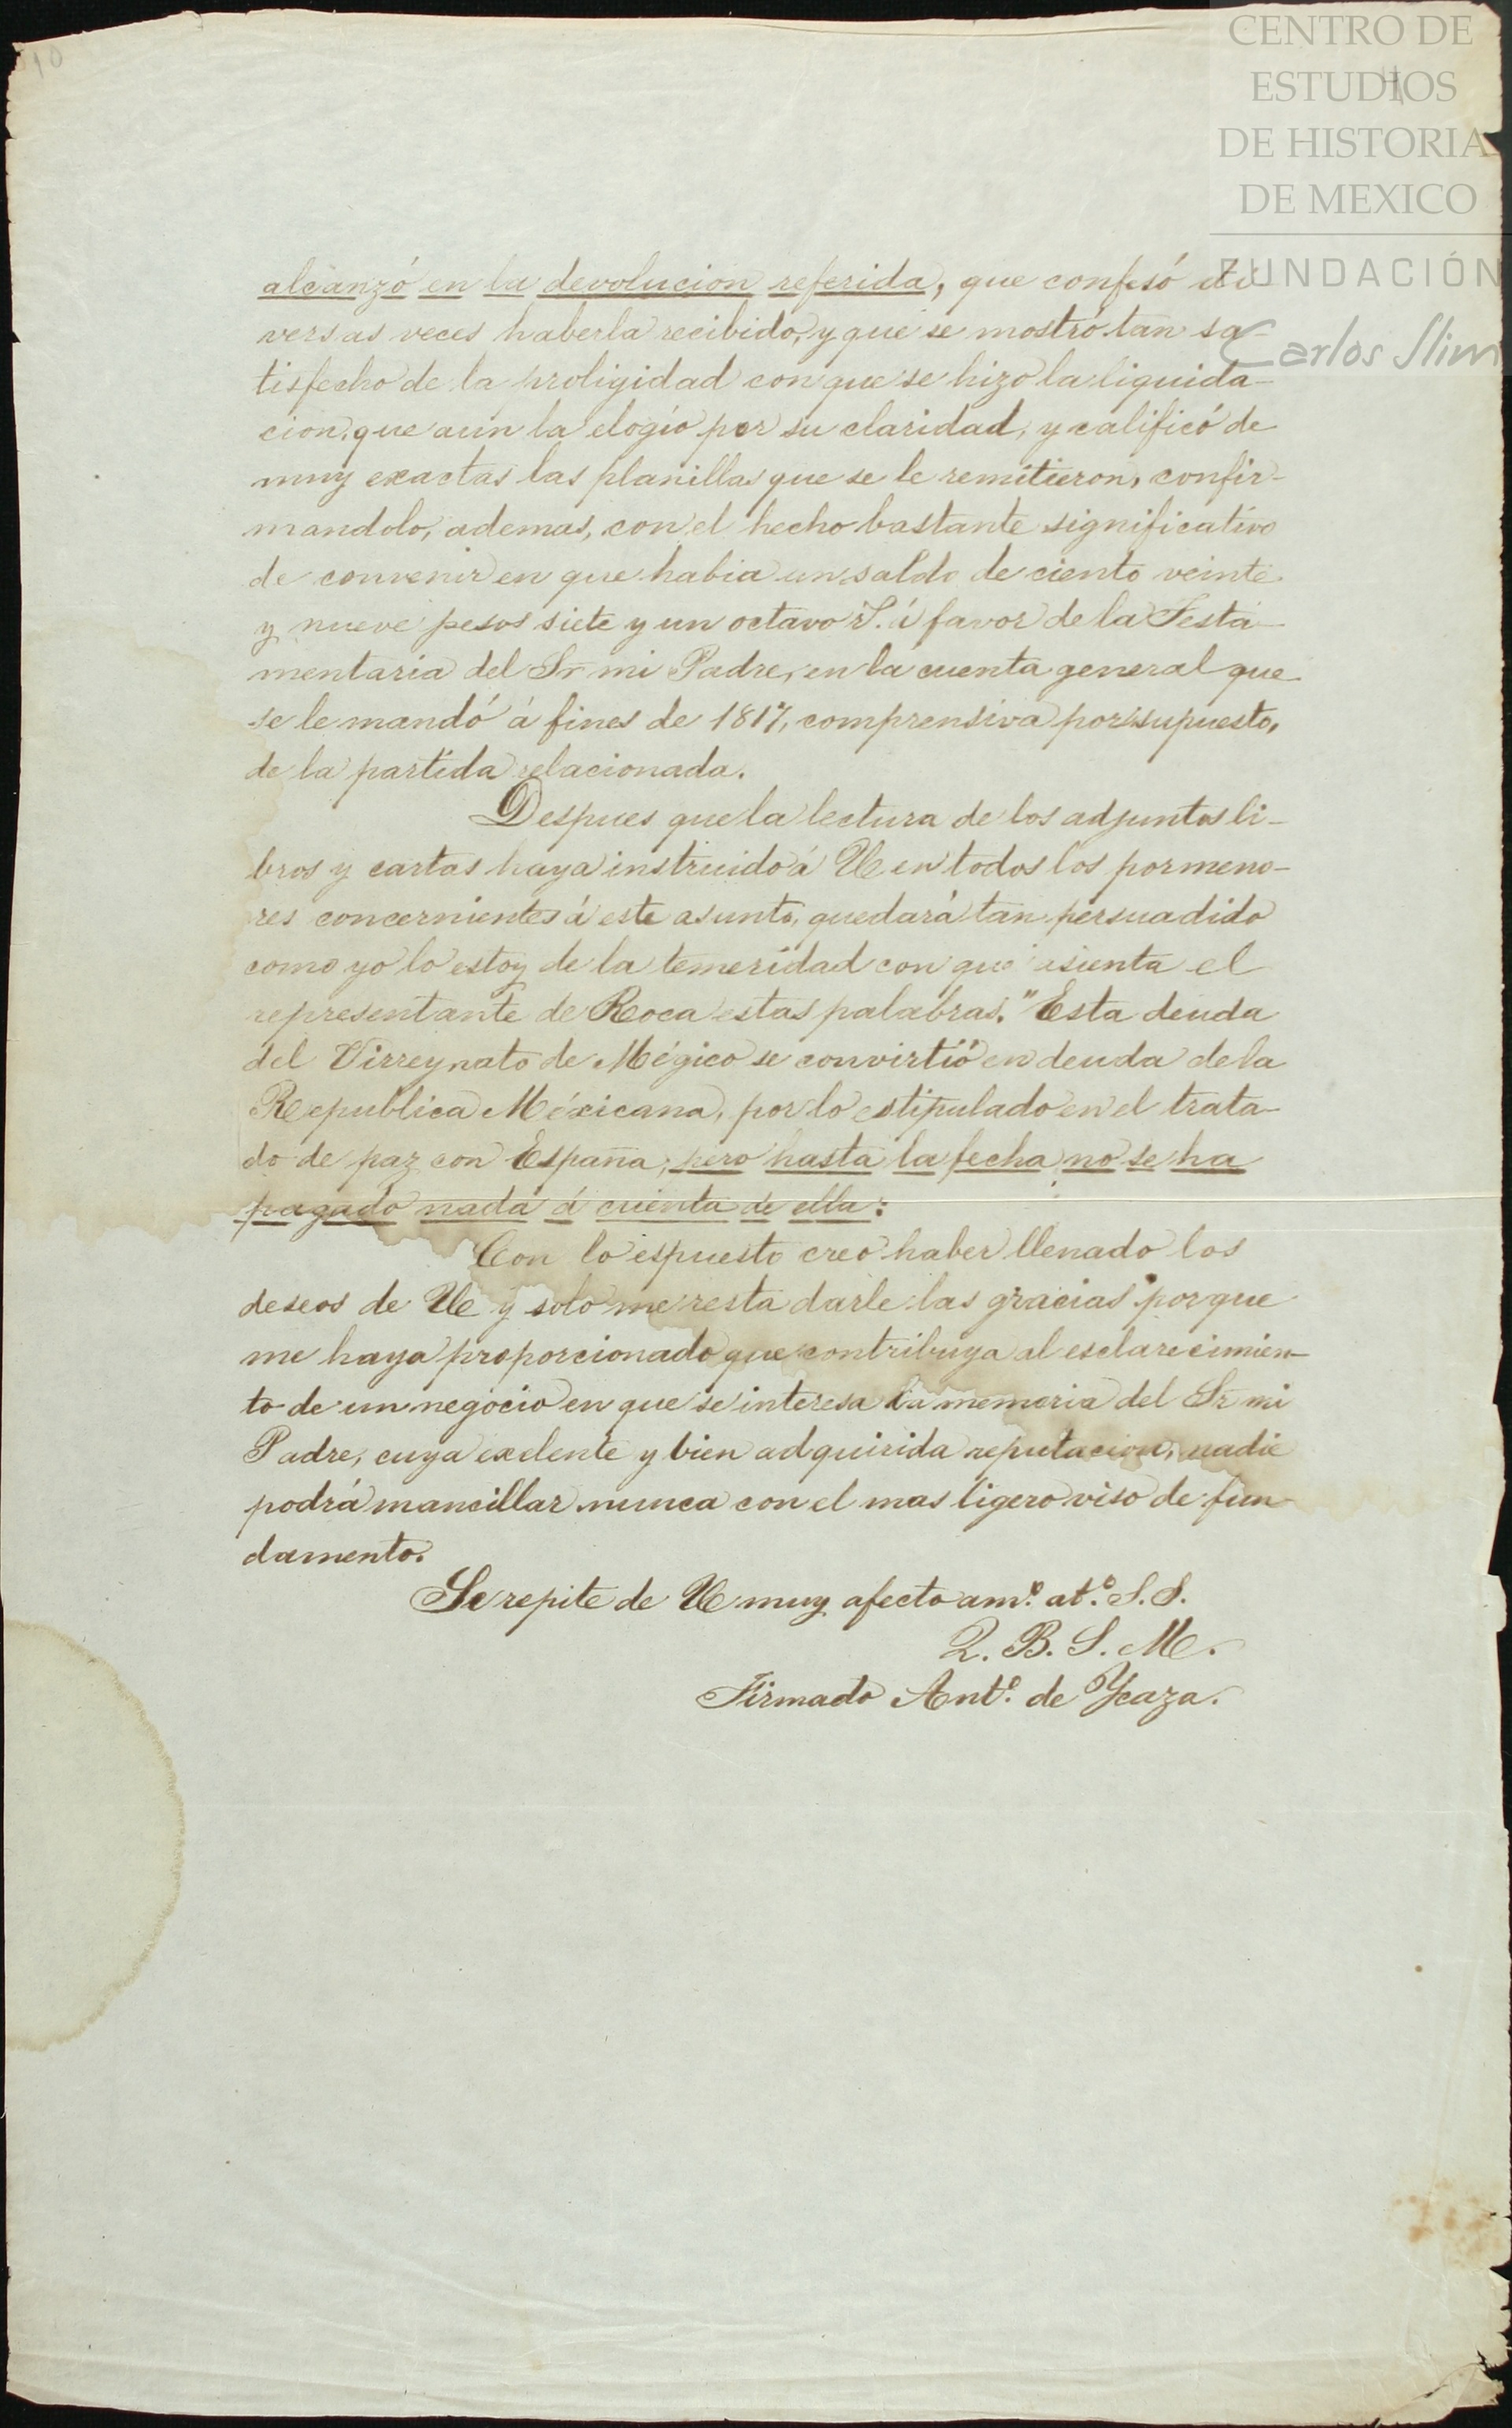 10
CENTRO DE
ESTUDIOS
DE HISTORIA
DE MEXICO
FUNDACIÓN
Carlos Slim
alcanzó en la devolucion referida, que confesó di
versas veces haberla recibido, y que se mostró tan sa-
tisfecho de la proligidad con que se hizo la liquida-
cion, que aun la elogío por su claridad, y calificó de
muy exactas las planillas que se le remitieron, confir-
mandolo, ademas, con el hecho bastante significativo
de convenir en que habia un saldo de ciento veinte
y nueve pesos siete y un octavo r.s á favor de la Testa-
mentaria del Sr mi Padre, en la cuenta general que
se le mandó á fines de 1817, comprensiva por supuesto,
de la partida relacionada.
Despues que la lectura de los adjuntos li-
bros y cartas haya instruido á Ue en todos los pormeno-
res concernientes á este asunto, quedará tan persuadido
como yo lo estoy de la temeridad con que asienta el
representante de Roca estas palabras. "Esta deuda
del Virreynato de Mégico se convirtió en deuda de la
Republica Méxicana, por lo estipulado en el trata-
do de paz con España; pero hasta la fecha no se ha
pagado nada á cuenta de ella:
Con lo espuesto creo haber llenado los
deseos de Ue y solo me resta darle las gracias porque
me haya proporcionado que contribuya al esclarecimien-
to de un negocio en que se interesa la memoria del Sr mi
Padre, cuya exelente y bien adquirida reputacion, nadie
podrá mancillar nunca con el mas ligero viso de fun-
damento.
Se repite de Ue muy afecto am.º at.º S. S.
Q. B. S. M.
Firmado Ant.º de Ycaza.